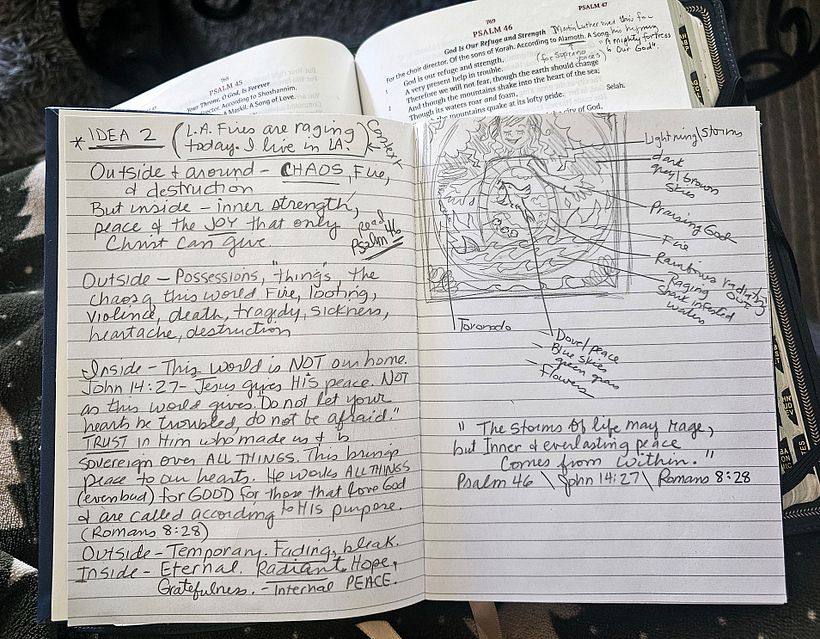 768
PSALM 45
Your Throne, O God, Is Forever
According to Shoshannim.
A Maskil. A Song of Love.
769
PSALM 46
PSALM 47
God Is Our Refuge and Strength
For the choir director. Of the sons of Korah. According to Alamoth. A Song.
God is our refuge and strength,
A very present help in trouble.
Therefore we will not fear, though the earth should change
And though the mountains shake into the heart of the sea;
Though its waters roar and foam,
the mountains quake at its lofty pride.
Selah.
city of God.
Martin Luther used this for
his hymn
"A mighty fortress
is Our God".
(for Soprano
voices)
* IDEA 2 (L.A. Fires are raging
today. I live in LA.)
Context
Outside & around - CHAOS, Fire,
& destruction
But inside - inner strength,
peace & the JOY that only
Christ can give.
Read
Psalm 46
Outside - Possessions, "things", the
chaos of this world Fire, looting,
violence, death, tragedy, sickness,
heartache, destruction
Inside - This world is NOT our home.
John 14:27 - Jesus gives HIS peace. NOT
as this world gives. Do not let your
hearts be troubled, do not be afraid."
TRUST in Him who made us & is
sovereign over ALL THINGS. This brings
peace to our hearts. He works ALL THINGS
(even bad) for GOOD for those that love God
& are called according to HIS purpose.
(Romans 8:28)
Outside - Temporary. Fading, bleak.
Inside - Eternal. Radiant. Hope,
Gratefulness. - Internal PEACE.
Lightning/storms
dark
grey/brown
skies
Praising God
Fire
Rainbows radiating
out
Raging
shark infested
waters
Toronado
Dove/peace
Blue skies
green grass
Flowers
" The storms of life may rage,
but Inner & everlasting peace
Comes from within. "
Psalm 46 \ John 14:27 \ Romans 8:28